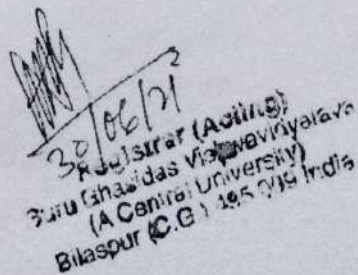 30/06/21
Registrar (Acting)
Guru Ghasidas Vishwavidyalaya
(A Central University)
Bilaspur (C.G.) 495 009 India